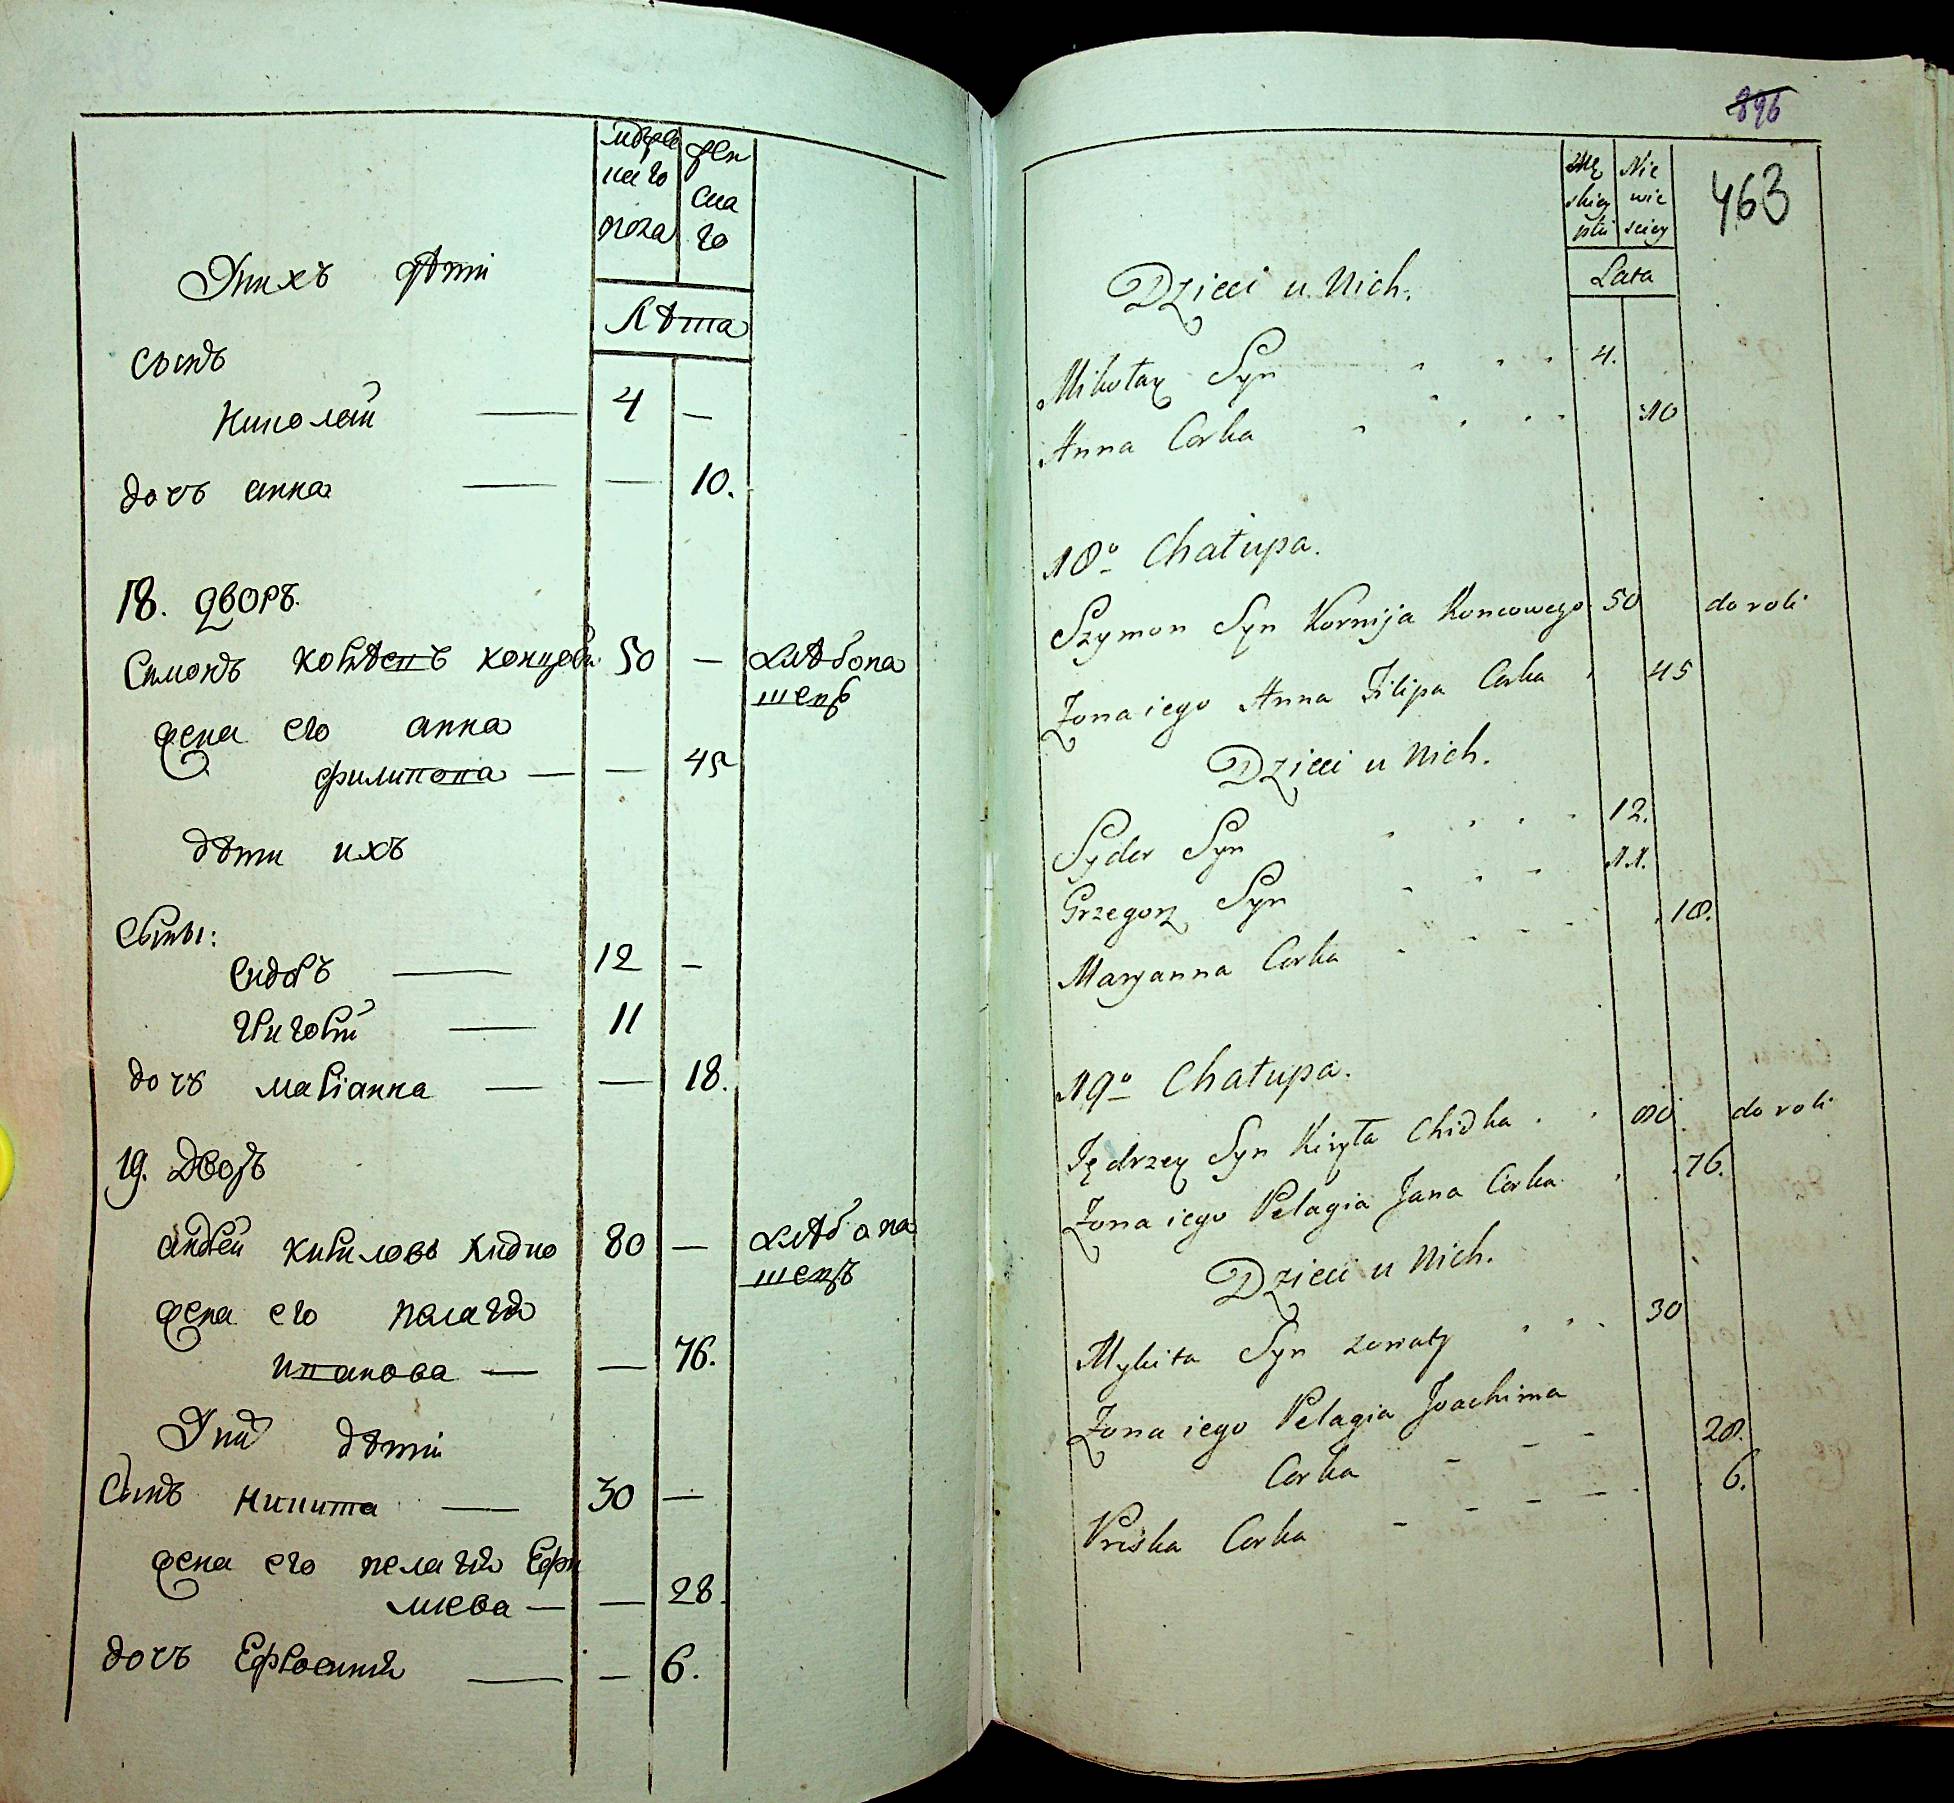 мужескаго пола
женскаго
Лѣта
Этихъ дѣти
сынъ
Николай — 4 —
дочь анна — — 10.
18. дворъ.
Симонъ 50 — хлѣбопашецъ
жена его анна
филипова — — 45
дѣти ихъ
Сыны:
Сидоръ — 12 —
Григорій — 11
дочь маріанна — — 18.
19. Дворъ
андрей кириловъ хидко 80 — хлѣбопашецъ
жена его пелагія
иванова — — 76.
дѣти
Сынъ никита — 30 —
жена его пелагія
— — 28.
дочь Ефросинія — — 6.
896
463
Męskiey płci
Niewiesciey
Lata
Dzieci u Nich.
Mikołay Syn 4.
Anna Corka 10
18o Chałupa.
Szymon Syn Kornija Koncowego 50 do roli
Zona iego Anna Filipa Corka 45
Dzieci u Nich.
Sydor Syn 12.
Grzegorz Syn 11.
Maryanna Corka 18.
19o Chałupa.
Jędrzey Syn Kiryła Chidka 80. do roli
Zona iego Pelagia Jana Corka 76.
Dzieci u Nich.
Mykita Syn zonaty 30
Zona iego Pelagia Joachima
Corka 28.
Priska Corka 6.